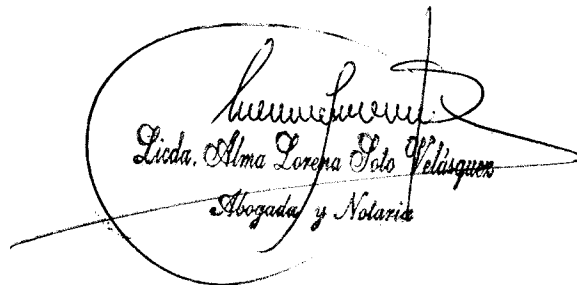 Licda. Alma Lorena Soto Velásquez
Abogada y Notaria